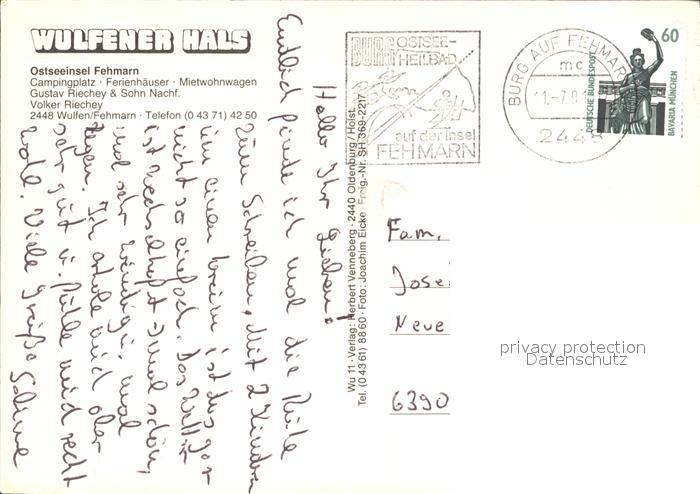 WULFENER HALS
Ostseeinsel Fehmarn
Campingplatz · Ferienhäuser · Mietwohnwagen
Gustav Riechey & Sohn Nachf.
Volker Riechey
2448 Wulfen/Fehmarn · Telefon (0 43 71) 42 50
Hallo Ihr Lieben!
Endlich finde ich mal die Ruhe
zum Schreiben. Mit 2 Kindern
im einen ist das gar
nicht so einfach. Das Wetter
ist wechselhaft mal schön,
und sehr windig u. mal
Regen. Ich aber
sehr gut u. fühle mich recht
wohl. Viele Grüße Sabine
Wu 11 · Verlag: Herbert Venneberg · 2440 Oldenburg/Holst.
Tel. (0 43 61) 88 60 · Foto: Joachim Eicke · Freig.-Nr. SH 369-2217
BURG OSTSEE-
HEILBAD
auf der Insel
FEHMARN
BURG AUF FEHMARN
mc
2448
60
DEUTSCHE BUNDESPOST
BAVARIA MÜNCHEN
Fam.
Jose
Neue
6390
privacy protection
Datenschutz